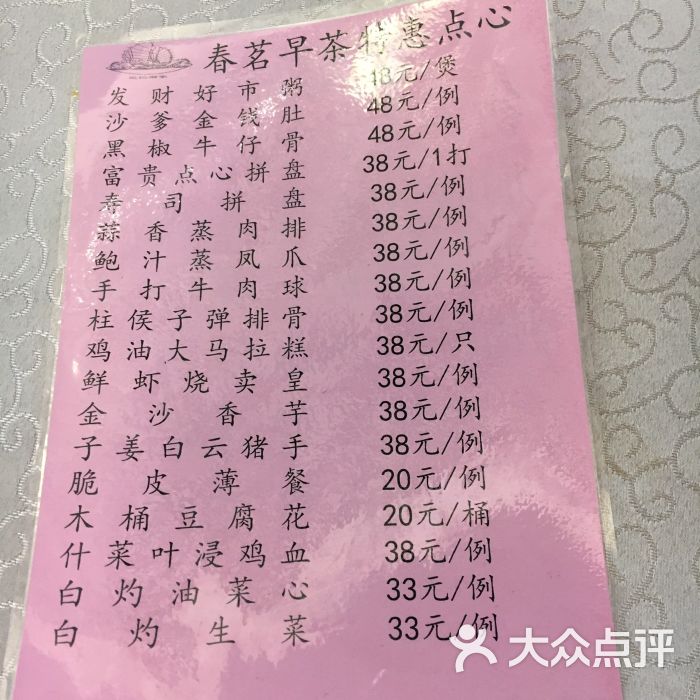 春茗早茶特惠点心
发财好市粥 48元/煲
沙爹金钱肚 48元/例
黑椒牛仔骨 48元/例
富贵点心拼盘 38元/1打
寿司拼盘 38元/例
蒜香蒸肉排 38元/例
鲍汁蒸凤爪 38元/例
手打牛肉球 38元/例
柱侯子弹排骨 38元/例
鸡油大马拉糕 38元/只
鲜虾烧卖皇 38元/例
金沙香芋 38元/例
子姜白云猪手 38元/例
脆皮薄餐 20元/例
木桶豆腐花 20元/桶
什菜叶浸鸡血 38元/例
白灼油菜心 33元/例
白灼生菜 33元/例
大众点评